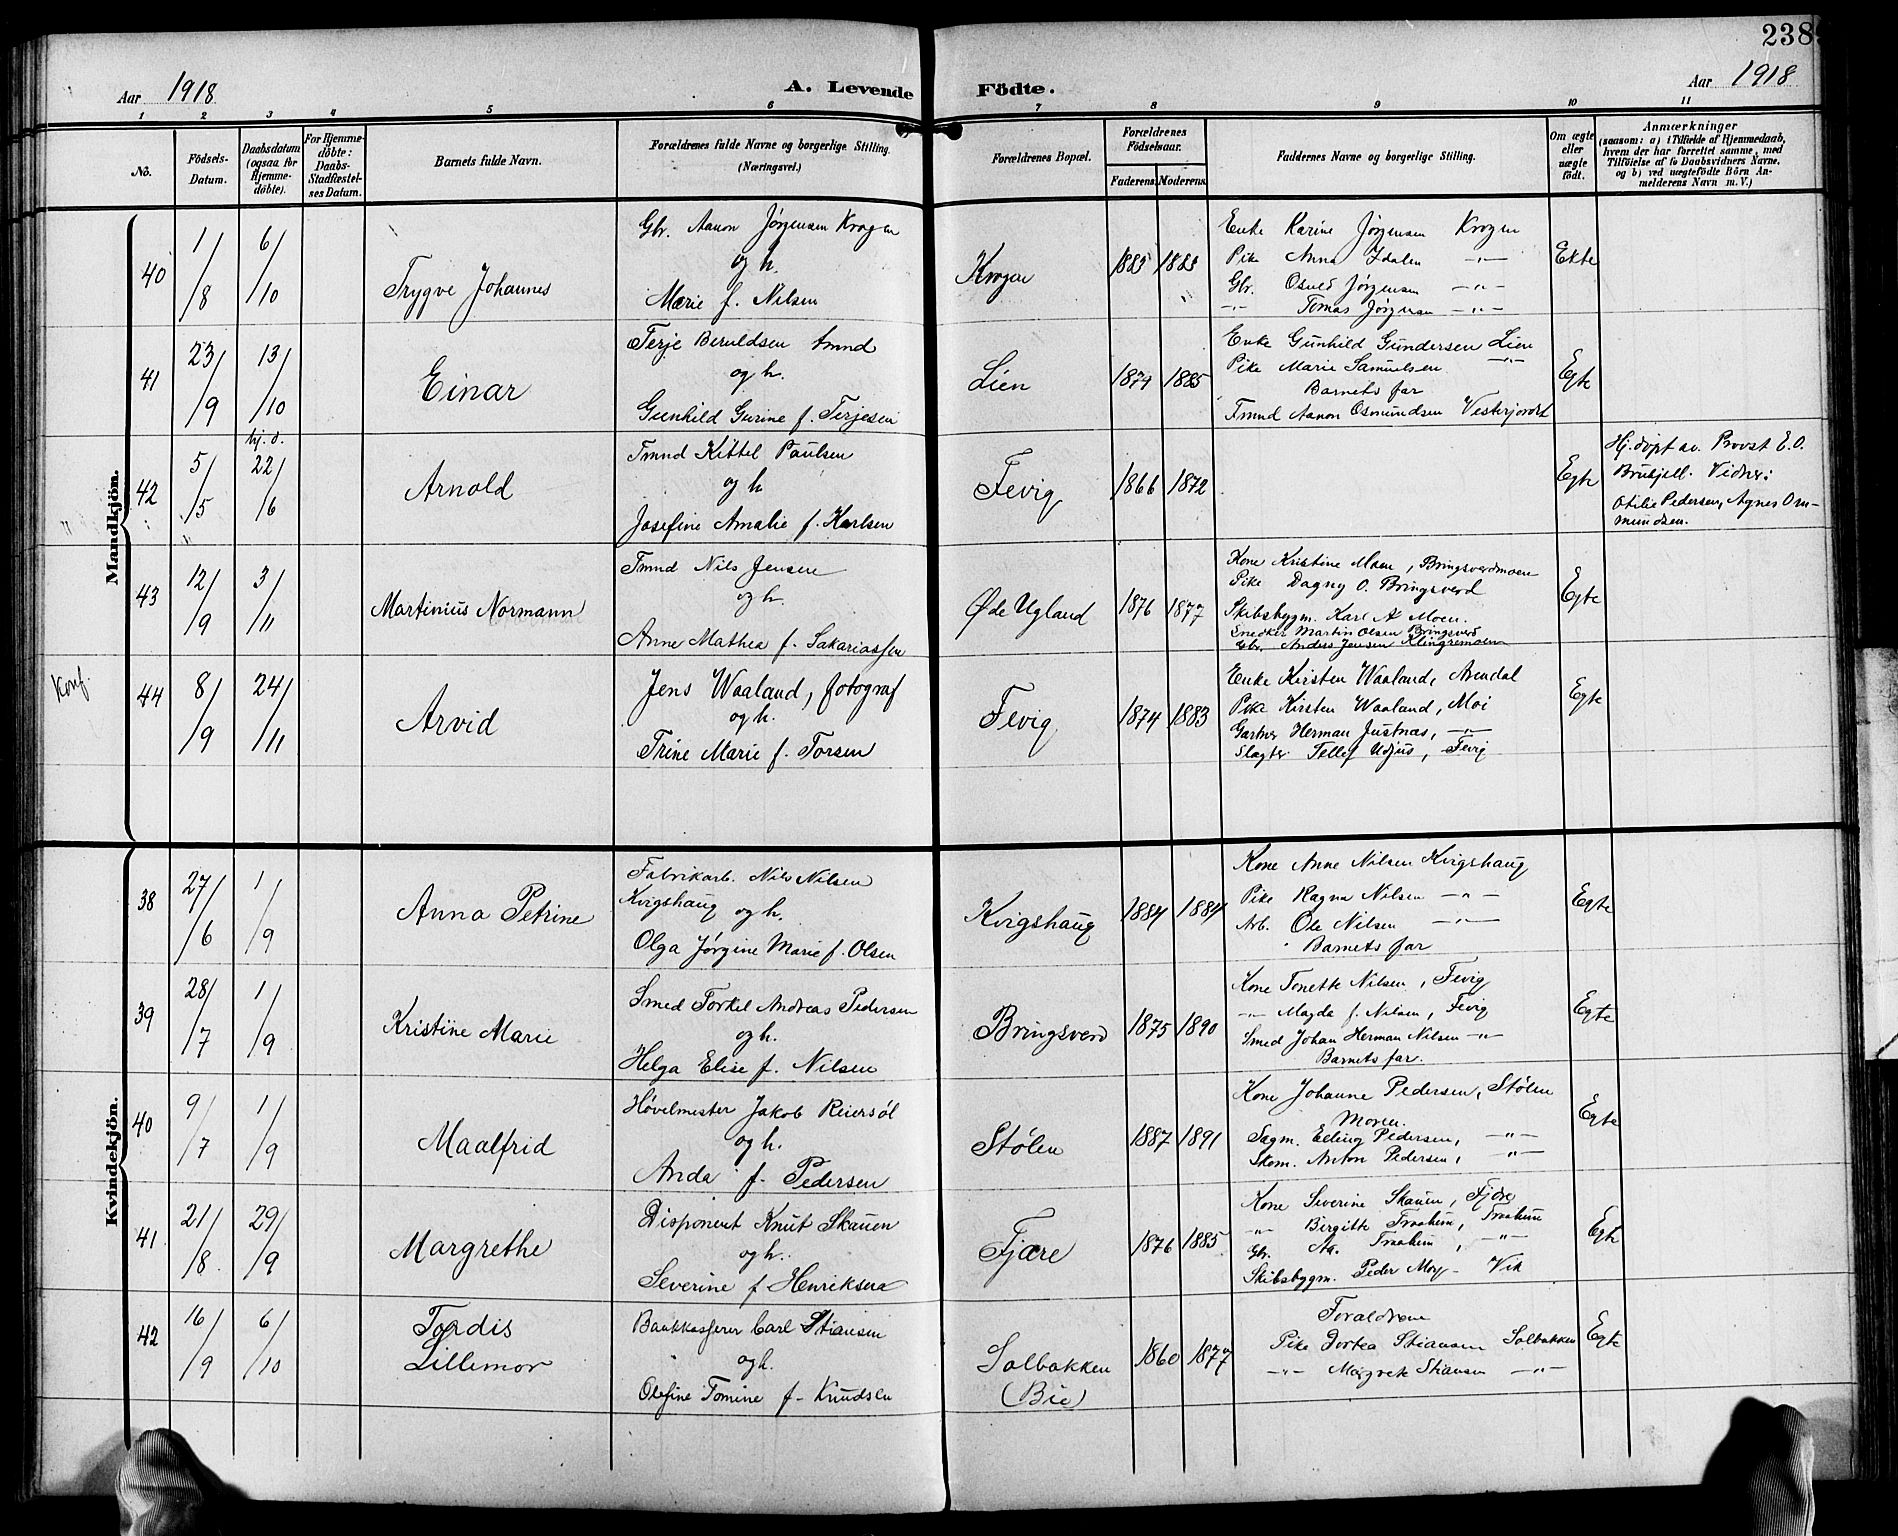 238
Aar 1918
A. Levende Födte.
Aar 1918
1 2 3 4 5 6 7 8 9 10 11
No.
Födsels-Datum.
Daabsdatum (ogsaa for Hjemme-döbte).
For Hjemme-döbte: Daabs-Stadfæstel-ses Datum.
Barnets fulde Navn.
Forældrenes fulde Navne og borgerlige Stilling. (Næringsvei.)
Forældrenes Bopæl.
Forældrenes Födselsaar.
Faderens. Moderens.
Faddernes Navne og borgerlige Stilling.
Om ægte eller uægte födt.
Anmærkninger
(saasom: a) i Tilfælde af Hjemmedaab, hvem der har forrettet samme, med Tilföielse af to Daabsvidners Navne, og b) ved uægtefödte Börn An-melderens Navn m. V.)
Mandkjön.
40
1/8
6/10
Trygve Johannes
Gbr. Aanon Jørgensen Krogen
og h.
Marie f. Nilsen
Krogen
1885 1883
Enke Karine Jørgensen Krogen
Pike Anna Idalen -"-
Gbr. Osvld Jørgensen -"-
-"- Tomas Jørgensen -"-
Ekte
41
23/9
13/10
Einar
Terje Beruldsen tmnd
og h.
Gunhild Gurine f. Terjesen
Lien
1874 1885
Enke Gunhild Gundersen Lien
Pike Marie Samuelsen -"-
Barnets far
Tmnd Aanon Osmundsen Vesterjordet
Egte
42
5/5
hj. d.
22/6
Arnold
Tmnd Kittel Paulsen
og h
Josefine Amalie f. Karlsen
Fevig
1866 1872
Egte
Hj. døpt av Provst E.O.
Brukjell. Vidner:
Otilie Pedersen, Agnes Om-
mundsen.
43
12/9
3/11
Martinius Normann
Tmnd Nils Jensen
og h.
Anne Mathea f. Sakariassen
Øde Ugland
1876 1877
Kone Kristine Moen, Bringsverdmoen
Pike Dagny O. Bringsverd
Skibsbygm. Karl A Moen.
Snedker Martin Olsen Bringsverd
Gbr. Anders Jensen Klingremoen
Egte
Konf.
44
8/9
24/11
Arvid
Jens Waaland, fotograf
og h.
Trine Marie f. Torsen
Fevig
1874 1883
Enke Kirsten Waaland, Arendal
Pike Kirsten Waaland, Moi
Gartner Herman Justnæs, -"-
Slagter Tellef Udjus, Fevig
Egte
Kvindekjön.
38
27/6
1/9
Anna Petrine
Fabrikarb. Nils Nilsen
Kvigshaug og h.
Olga Jørgine Marie f. Olsen
Kvigshaug
1884 1884
Kone Anne Nilsen Kvigshaug
Pike Ragna Nilsen -"-
Arb. Ole Nilsen -"-
Barnets far
Egte
39
28/7
1/9
Kristine Marie
Smed Torkel Andreas Pedersen
og h.
Helga Elise f. Nilsen
Bringsverd
1875 1890
Kone Tonette Nilsen, Fevig
-"- Magda f. Nilsen, Fevig
Smed Johan Herman Nilsen -"-
Barnets far.
Egte
40
9/7
1/9
Maalfrid
Høvelmester Jakob Reiersøl
og h.
Anda f. Pedersen
Stølen
1887 1891
Kone Johanne Pedersen, Stølen
Moren.
Sagm. Elling Pedersen, -"-
Skom. Anton Pedersen, -"-
Egte
41
21/8
29/9
Margrethe
Disponent Knut Skauen
og h.
Severine f Henriksen
Fjære
1876 1885
Kone Severine Skauen, Fjære
-"- Birgitte Traaheim, Traaheim
Gbr. Aa. Traaheim, -"-
Skibsbygm. Peder Moy - Vik
Egte
42
16/9
6/10
Tordis
Lillemor
Bankkasserer Carl Stiansen
og h.
Olefine Tomine f. Knudsen
Solbakken
(Bie)
1860 1877
Foraldrene
Pike Dortea Stiansen Solbakken
-"- Margrete Stiansen -"-
Egte